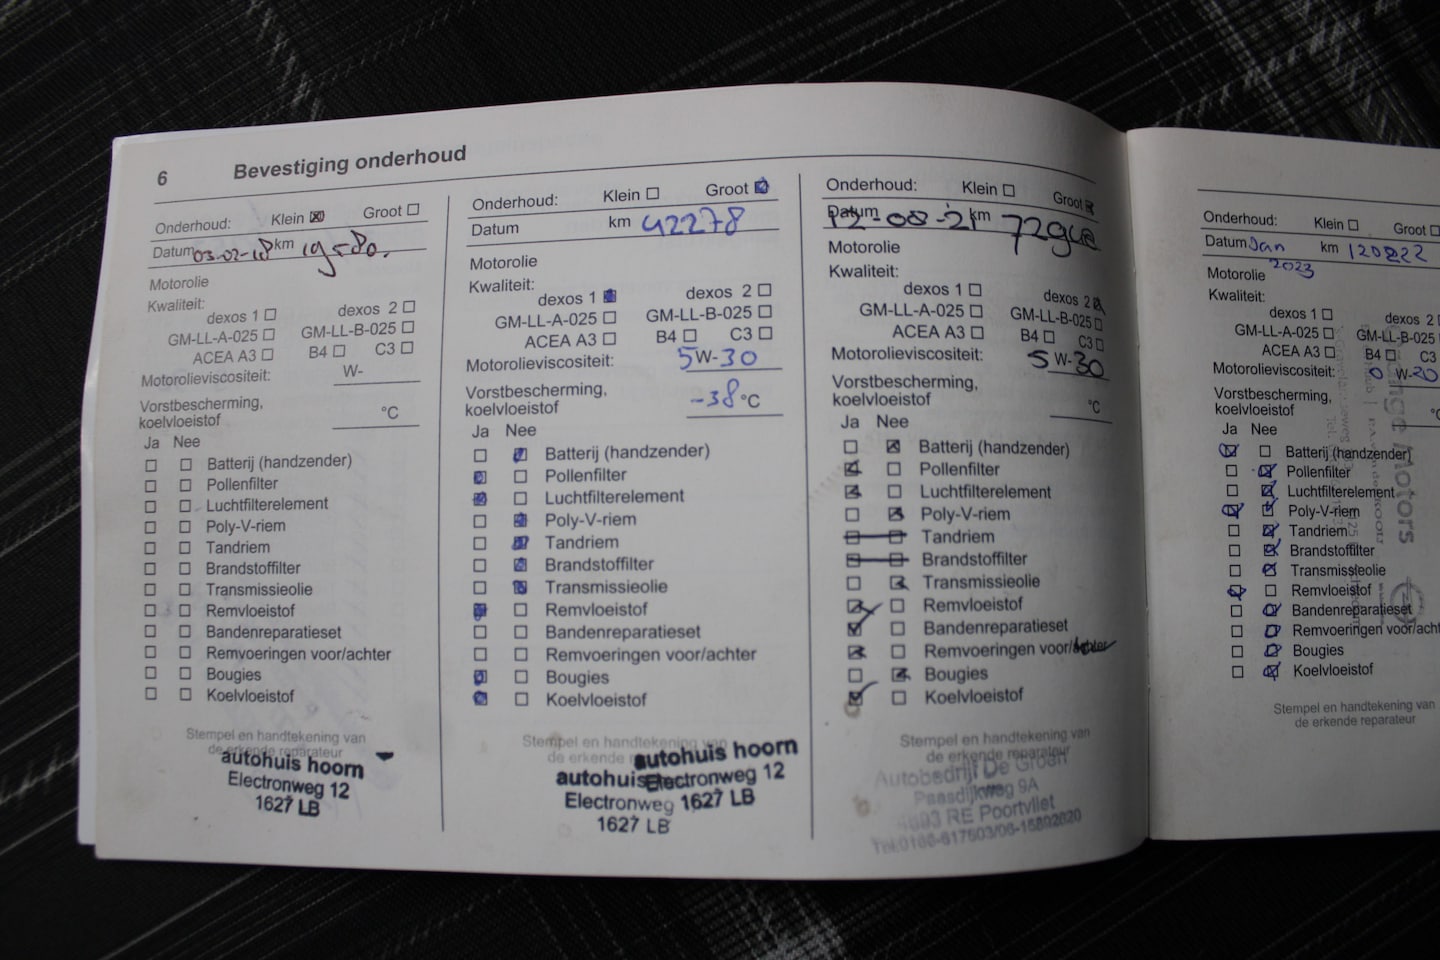 6 Bevestiging onderhoud
Onderhoud: Klein Groot
Datum 03-02-18 km 19580.
Motorolie
Kwaliteit:
dexos 1 dexos 2
GM-LL-A-025 GM-LL-B-025
ACEA A3 B4 C3
Motorolieviscositeit: W-
Vorstbescherming,
koelvloeistof °C
Ja Nee
Batterij (handzender)
Pollenfilter
Luchtfilterelement
Poly-V-riem
Tandriem
Brandstoffilter
Transmissieolie
Remvloeistof
Bandenreparatieset
Remvoeringen voor/achter
Bougies
Koelvloeistof
Stempel en handtekening van
de erkende reparateur
autohuis hoorn
Electronweg 12
1627 LB
Onderhoud: Klein Groot
Datum km 42278
Motorolie
Kwaliteit:
dexos 1 dexos 2
GM-LL-A-025 GM-LL-B-025
ACEA A3 B4 C3
Motorolieviscositeit: 5 W-30
Vorstbescherming,
koelvloeistof -38 °C
Ja Nee
Batterij (handzender)
Pollenfilter
Luchtfilterelement
Poly-V-riem
Tandriem
Brandstoffilter
Transmissieolie
Remvloeistof
Bandenreparatieset
Remvoeringen voor/achter
Bougies
Koelvloeistof
Stempel en handtekening van
de erkende
autohuis hoorn
autohuis Electronweg 12
Electronweg 1627 LB
1627 LB
Onderhoud: Klein Groot
Datum 12-08-21 km
Motorolie
Kwaliteit:
dexos 1 dexos 2
GM-LL-A-025 GM-LL-B-025
ACEA A3 B4 C3
Motorolieviscositeit: 5 W-30
Vorstbescherming,
koelvloeistof °C
Ja Nee
Batterij (handzender)
Pollenfilter
Luchtfilterelement
Poly-V-riem
Tandriem
Brandstoffilter
Transmissieolie
Remvloeistof
Bandenreparatieset
Remvoeringen voor/achter
Bougies
Koelvloeistof
Stempel en handtekening van
de erkende reparateur
Autobedrijf De Graaf
Paasdijkweg 9A
4693 RE Poortvliet
Onderhoud: Klein Groot
Datum Jan km 120822
Motorolie 2023
Kwaliteit:
dexos 1 dexos 2
GM-LL-A-025 GM-LL-B-025
ACEA A3 B4 C3
Motorolieviscositeit: 0 W-20
Vorstbescherming,
koelvloeistof
Ja Nee
Batterij (handzender)
Pollenfilter
Luchtfilterelement
Poly-V-riem
Tandriem
Brandstoffilter
Transmissieolie
Remvloeistof
Bandenreparatieset
Remvoeringen voor/acht
Bougies
Koelvloeistof
Stempel en handtekening van
de erkende reparateur
Motors